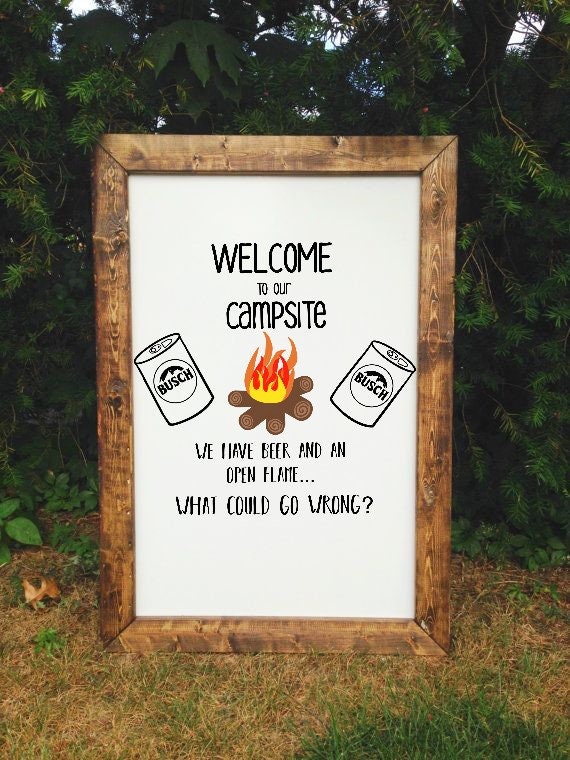 WELCOME
TO OUR
CAMPSITE
BUSCH
BUSCH
WE HAVE BEER AND AN
OPEN FLAME...
WHAT COULD GO WRONG?